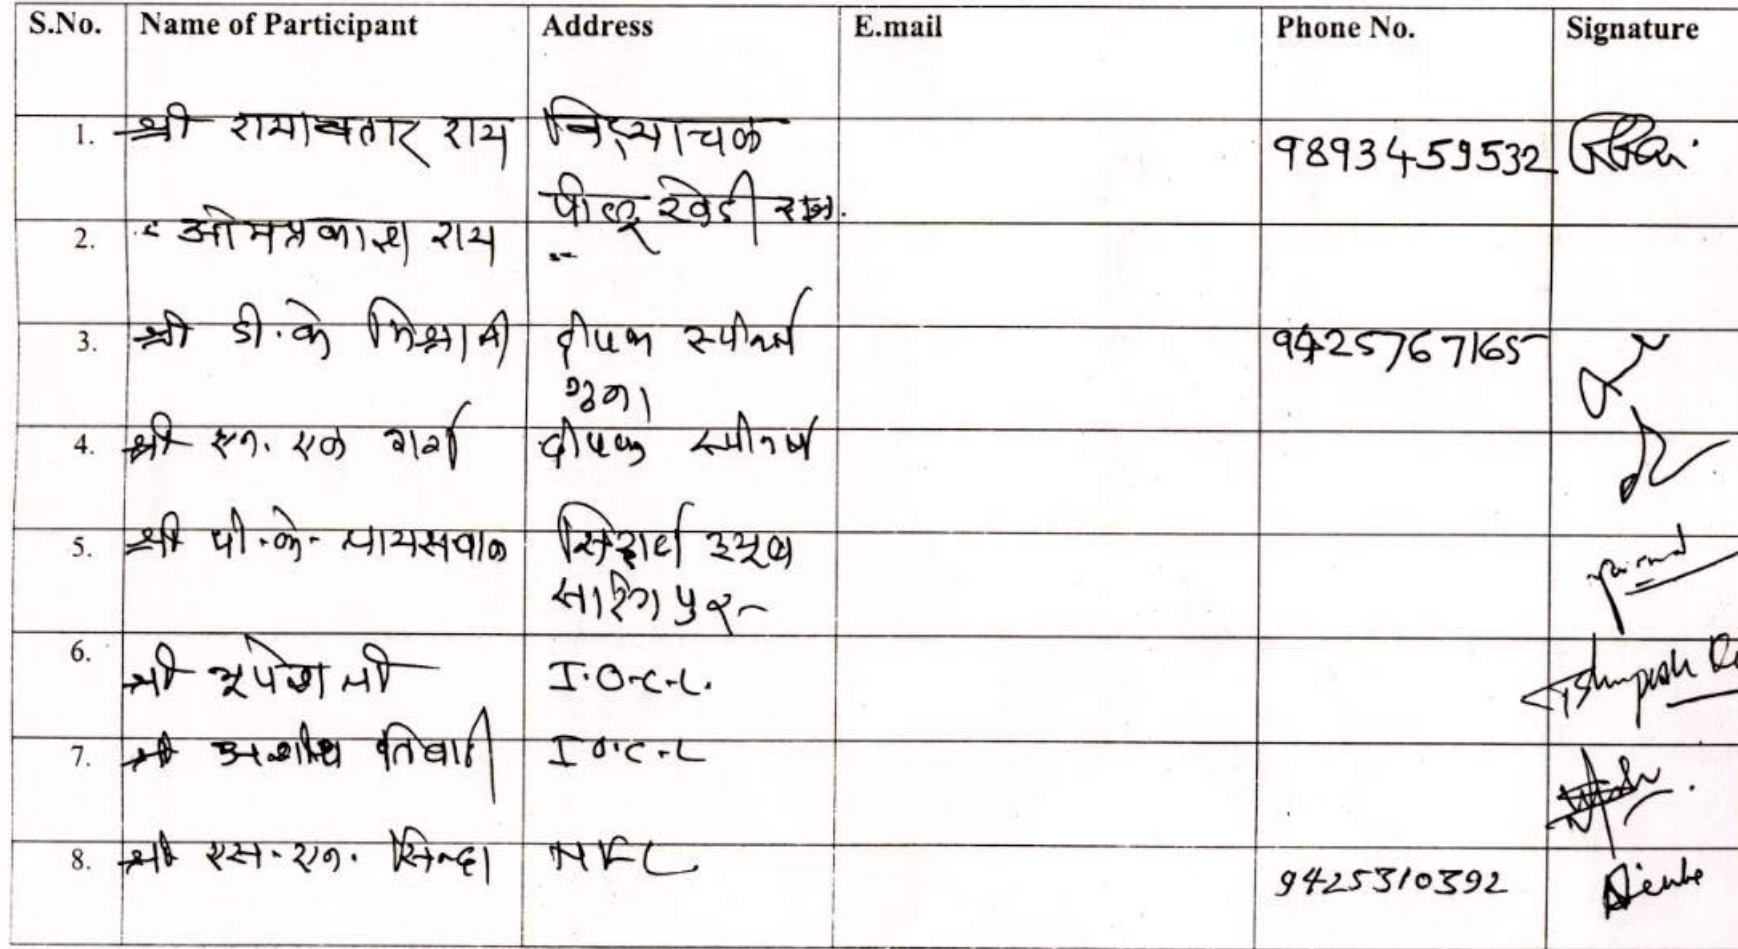 S.No. Name of Participant Address E.mail Phone No. Signature
1. श्री रामावतार राय विंद्याचल 9893459532
पीलूखेडी
2. ओमप्रकाश राय "
3. श्री डी.के मिश्रा जी दीपक स्पीनर्स 9425767165
गुना
4. श्री एन. एल गर्ग दीपक स्पीनर्स
5. श्री पी.के. जायसवाल
सारंगपुर
6. श्री भूपेश जी I.O.C.L.
7. श्री तिवारी I.O.C.L
8. श्री एस.एन. सिन्हा NFL 9425310392